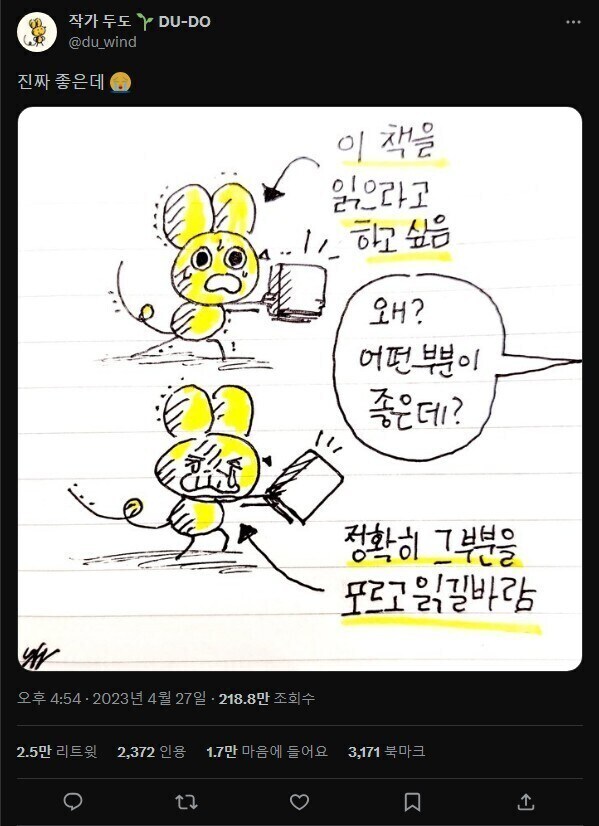 작가 두도 🌱 DU-DO
@du_wind
진짜 좋은데 😭
이 책을
읽으라고
하고 싶음
왜?
어떤 부분이
좋은데?
정확히 그 부분을
모르고 읽길 바람
오후 4:54 · 2023년 4월 27일 · 218.8만 조회수
2.5만 리트윗 2,372 인용 1.7만 마음에 들어요 3,171 북마크